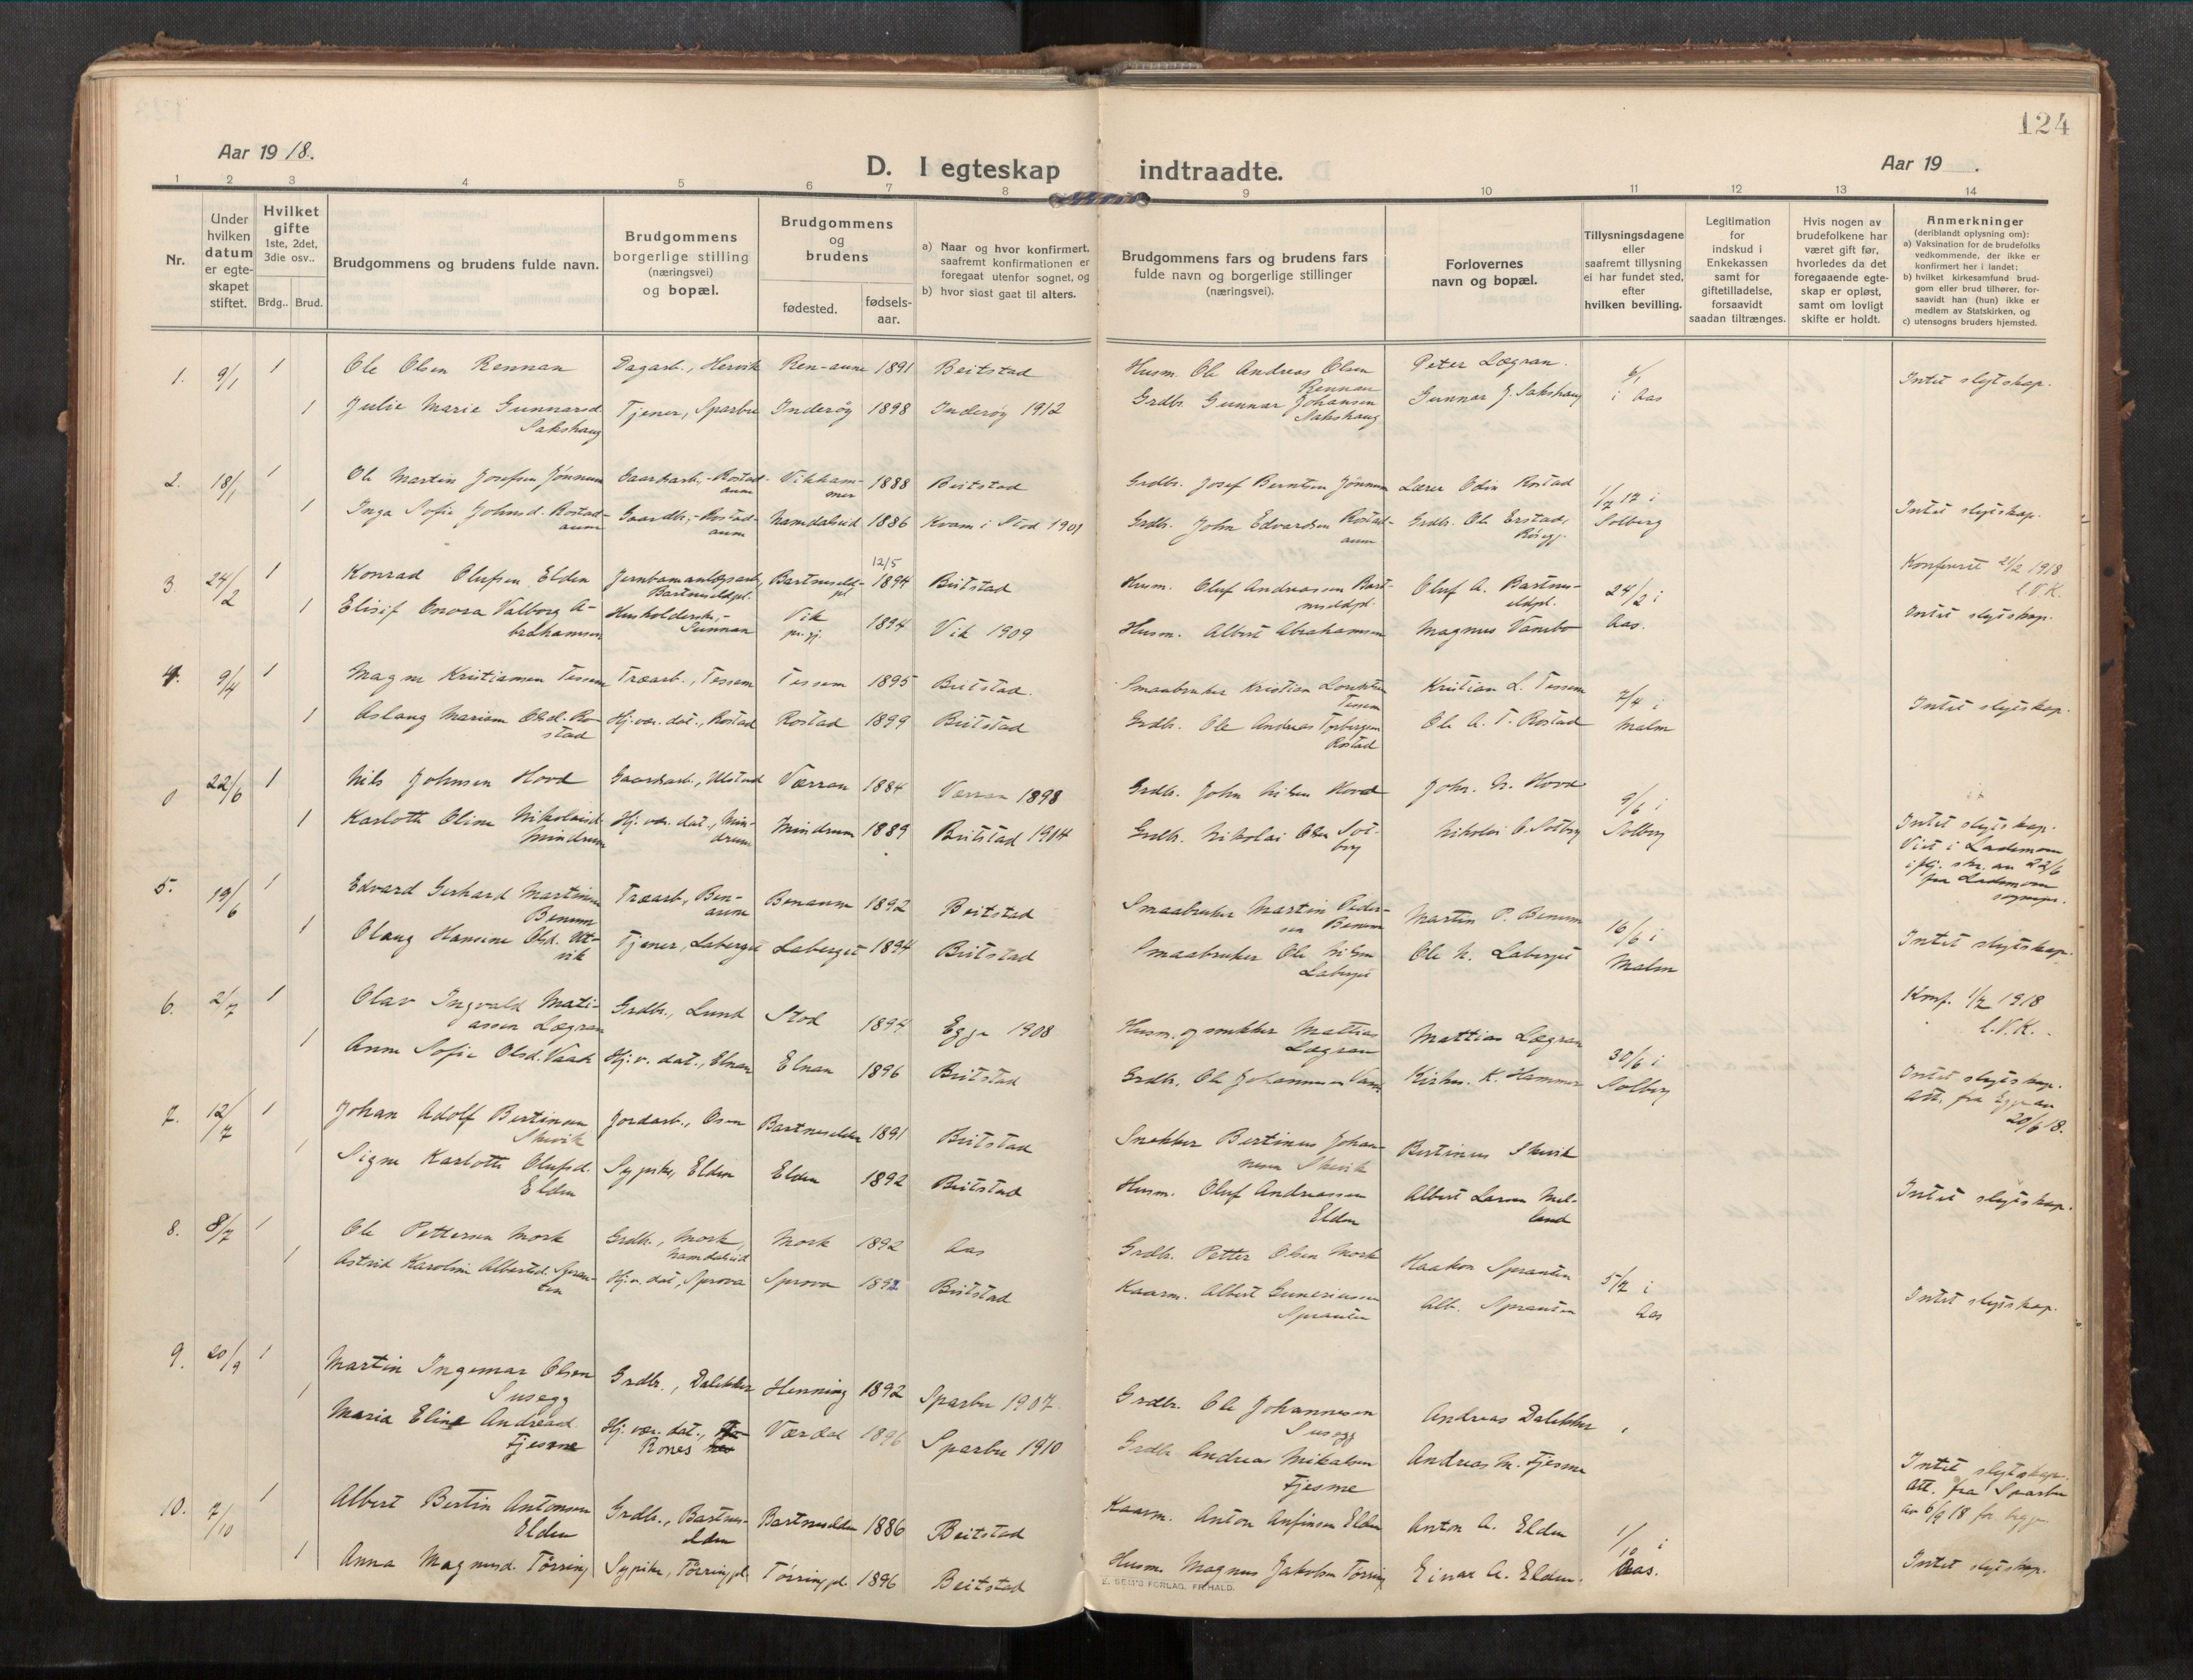 124
Aar 1918.
D. I egteskap indtraadte.
Aar 19 .
1 2 3 4 5 6 7 8 9 10 11 12 13 14
Nr.
Under
hvilken
datum
er egte-
skapet
stiftet.
Hvilket
gifte
1ste, 2det,
3die osv..
Brdg.. Brud.
Brudgommens og brudens fulde navn.
Brudgommens
borgerlige stilling
(næringsvei)
og bopæl.
Brudgommens
og
brudens
fødested.
fødsels-
aar.
a) Naar og hvor konfirmert,
saafremt konfirmationen er
foregaat utenfor sognet, og
b) hvor sidst gaat til alters.
Brudgommens fars og brudens fars
fulde navn og borgerlige stillinger
(næringsvei).
Forlovernes
navn og bopæl.
Tillysningsdagene
eller
saafremt tillysning
ei har fundet sted,
efter
hvilken bevilling.
Legitimation
for
indskud i
Enkekassen
samt for
giftetilladelse,
forsaavidt
saadan tiltrænges.
Hvis nogen av
brudefolkene har
været gift før,
hvorledes da det
foregaaende egte-
skap er opløst,
samt om lovligt
skifte er holdt.
Anmerkninger
(deriblandt oplysning om):
a) Vaksination for de brudefolks
vedkommende, der ikke er
konfirmert her i landet;
b) hvilket kirkesamfund brud-
gom eller brud tilhører, for-
saavidt han (hun) ikke er
medlem av Statskirken, og
c) utensogns bruders hjemsted.
1. 9/1 1 Ole Olsen Rennan Dagarb., Hervik Ren-aune 1891 Beitstad Husm. Ole Andreas Olsen Peter Lægran. 6/1
Rennan
1 Julie Marie Gunnarsd. Tjener, Sparbu Inderøy 1898 Inderøy 1912 Grdbr. Gunnar Johansen Gunnar J. Sakshaug i Aas Intet slegtskap.
Sakshaug Sakshaug
2. 18/1 1 Ole Martin Josefsen Jønnum Gaardarb., Rostad- Vikham- 1888 Beitstad Grdbr. Josef Berntsen Jønnum Lærer Odin Rostad 1/7 17 i
aune mer
1 Inga Sofie Johnsd. Rostad- Gaardbr., Rostad- Namdalseid 1886 Kvam i Stod 1901 Grdbr. John Edvardsen Rostad- Grdbr. Ole Erstad, Solberg Intet slegtskap.
aune aune aune
3. 24/2 1 Konrad Olufsen Elden Jernbaneanlægsarb, Bartneseld- 12/5 1894 Beitstad Husm. Oluf Andreassen Bart- Oluf A. Bartnes- 24/2 i Konferert 21/2 1918
Bartneseldpl. pl. neseldpl. eldpl. l.V.K.
1 Elisif Onora Valborg A- Husholderske, Vik 1894 Vik 1909 Husm. Albert Abrahamsen Magnus Vambo Aas. Intet slegtskap.
brahamsen Sunnan
4. 9/4 1 Magne Kristiansen Tessem Træarb., Tessem Tessem 1895 Beitstad. Smaabruker Kristian Lorentsen Kristian L. Tessem 7/4 i
Tessem
1 Aslaug Mariane Olsd. Ro- Hj. vær. dat., Rostad Rostad 1899 Beitstad Grdbr. Ole Andreas Torbergsen Ole A. T. Rostad Malm Intet slegtskap.
stad Rostad
0 22/6 1 Nils Johnsen Hovd Gaardarb., Ulstad Værran 1884 Værran 1898 Grdbr. John Nilsen Hovd John. N. Hovd 9/6 i
1 Karlotte Oline Nikolaisd. Hj. vær. dat., Min- Mindrum 1889 Beitstad 1904 Grdbr. Nikolai Olsen Sol- Nikolai O. Solberg Solberg Intet slegtskap.
Mindrum drum berg
Viet i Lademoen
iflg. skr. av 22/6
fra Lademoen
sognepr.
5. 19/6 1 Edvard Gerhard Martinsen Træarb., Ben- Benaunm 1892 Beitstad Smaabruker Martin Peder- Martin P. Benum 16/6 i
Benum aune sen Benum
1 Olaug Hansine Olsd. Ut- Tjener, Laberget Laberget 1894 Beitstad Smaabruker Ole Nilsen Ole N. Laberget Malm Intet slegtskap.
vik Laberget
6. 2/7 1 Olav Ingvald Mati- Grdbr., Lund Stod 1894 Egge 1908 Husm. og snekker Mattias Mattias Lægran 30/6 i Konf. 1/7 1918
assen Lægran Lægran l.V.K.
1 Anne Sofie Olsd. Vaak Hj. v. dat., Elnan Elnan 1896 Beitstad Grdbr. Ole Johannesen K. Hammer Solberg Intet slegtskap.
Att. fra Egge av
20/6 18.
7. 12/7 1 Johan Adolf Bertinsen Jordarb., Osen Bartneselden 1891 Beitstad Snekker Bertinus Johan- Bertinus Skevik
Skevik nesen Skevik
1 Signe Karlotte Olufsd. Sypike, Elden Elden 1892 Beitstad Husm. Oluf Andreassen Albert Larsen Mel- Intet slegtskap.
Elden Elden land
8. 8/7 1 Ole Pettersen Mork Grdbr., Mork, Mork 1892 Aas Grdbr. Petter Olsen Mork Haakon Sprauten 5/7 i
Namdalseid
1 Astrid Karoline Albertsd. Sprau- Hj. v. dat., Sprova Sprova 1892 Beitstad Kaarm. Albert Guneriussen Alb. Sprauten Aas Intet slegtskap.
ten Sprauten
9. 20/9 1 Martin Ingemar Olsen Grdbr., Dalekker Henning 1892 Sparbu 1907 Grdbr. Ole Johannesen Andreas Dalekker
Susegg Susegg
1 Maria Eline Andread. Hj. vær. dat., Værdal 1896 Sparbu 1910 Grdbr. Andreas Mikalsen Andreas M. Fjesme Intet slegtskap.
Fjesme Rones Fjesme Att. fra Sparbu
av 6/9 18 for begge
10. 7/10 1 Albert Bertin Antonsen Grdbr., Bartnes- Bartneselden 1886 Beitstad Kaarm. Anton Anfinsen Elden Anton A. Elden 1/10 i
Elden elden
1 Anna Magnusd. Tørring Sypike, Tørringpl. Tørringpl. 1896 Beitstad Husm. Magnus Jakobsen Tørring Einar A. Elden. Aas. Intet slegtskap.
E. SEM'S FORLAG, FR.HALD.